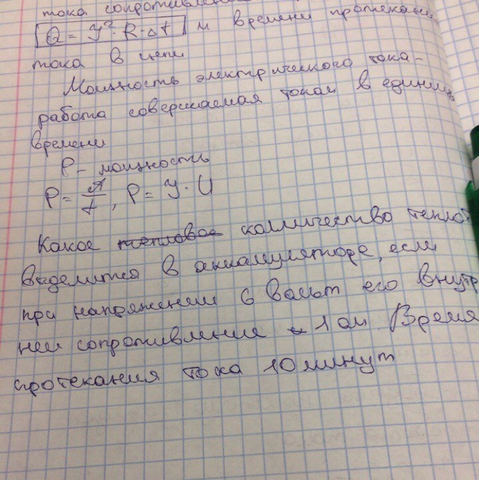 тока сопротивлен
Q = I² · R · Δt и времени протекани
тока в цепи
Мощность электрического тока -
работа совершаемая током в единиц
времени
P - мощность
P = A/t, P = I · U
Какое тепловое колличество тепло
выделится в аккамуляторе, если
при напряжении 6 вольт его внутр
нее сопротивление - 1 ом Время
протекания тока 10 минут